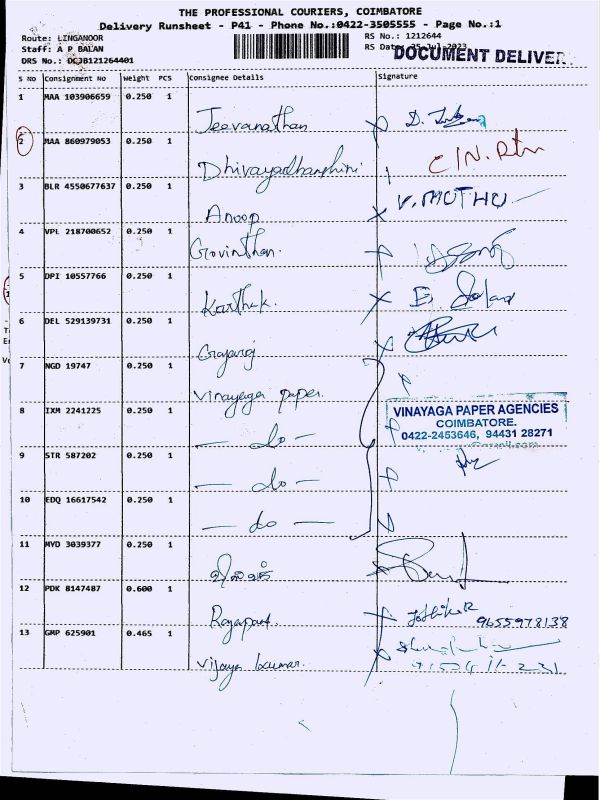 THE PROFESSIONAL COURIERS, COIMBATORE
Delivery Runsheet - P41 - Phone No.:0422-3505555 - Page No.:1
Route: LINGANOOR
RS No.: 1212644
Staff: A P BALAN
RS Date: 25-Jul-2023
DOCUMENT DELIVER
DRS No.: DCJB121264401
S No Consignment No Weight PCS Consignee Details Signature
1 MAA 103906659 0.250 1
Jeevanathan
2 MAA 860979053 0.250 1
Dhivayadharshini
3 BLR 4550677637 0.250 1
V. MUTHU
Anoop
4 VPL 218700652 0.250 1
Govinthan.
5 DPI 10557766 0.250 1
Karthik.
6 DEL 529139731 0.250 1
Gajaraj
7 NGD 19747 0.250 1
Vinayaga paper.
8 IXM 2241225 0.250 1
VINAYAGA PAPER AGENCIES
COIMBATORE.
0422-2453646, 94431 28271
— do —
9 STR 587202 0.250 1
— do —
10 EDQ 16617542 0.250 1
— do —
11 MYD 3039377 0.250 1
12 PDK 8147487 0.600 1
9655978138
13 GMP 625901 0.465 1
Vijaya kumar.